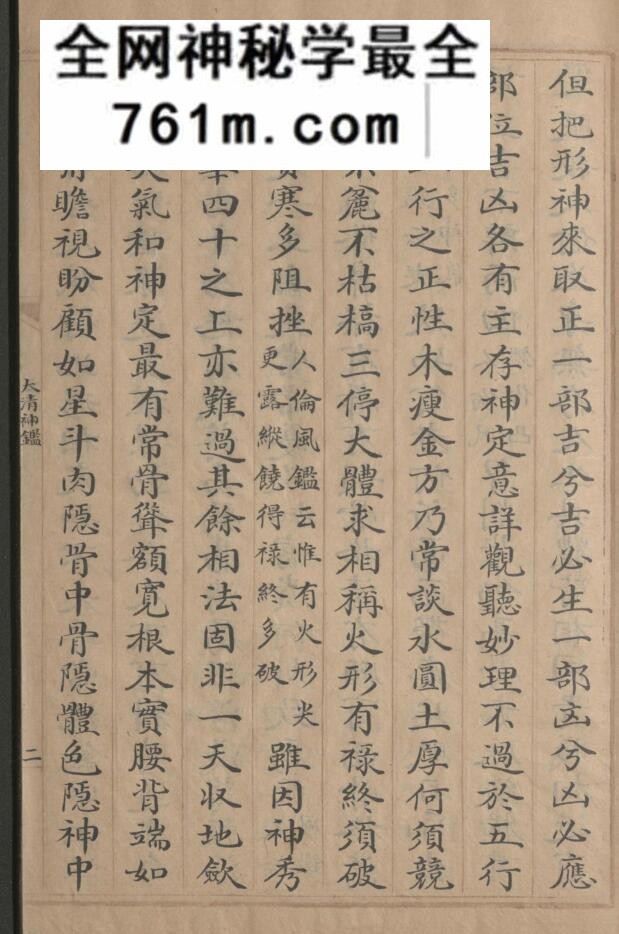 全网神秘学最全
761m.com
但把形神來取正一部吉兮吉必生一部凶兮凶必應
部位吉凶各有主存神定意詳觀聽妙理不過於五行
行之正性木瘦金方乃常談水圓土厚何須競
麄不枯槁三停大體求相稱火形有祿終須破
寒多阻挫
人倫風鑑云惟有火形尖
更露縱饒得祿終多破
雖因神秀
四十之上亦難過其餘相法固非一天収地歛
氣和神定最有常骨聳額寬根本實腰背端如
瞻視盼顧如星斗肉隱骨中骨隱體色隱神中
太清神鑑
二